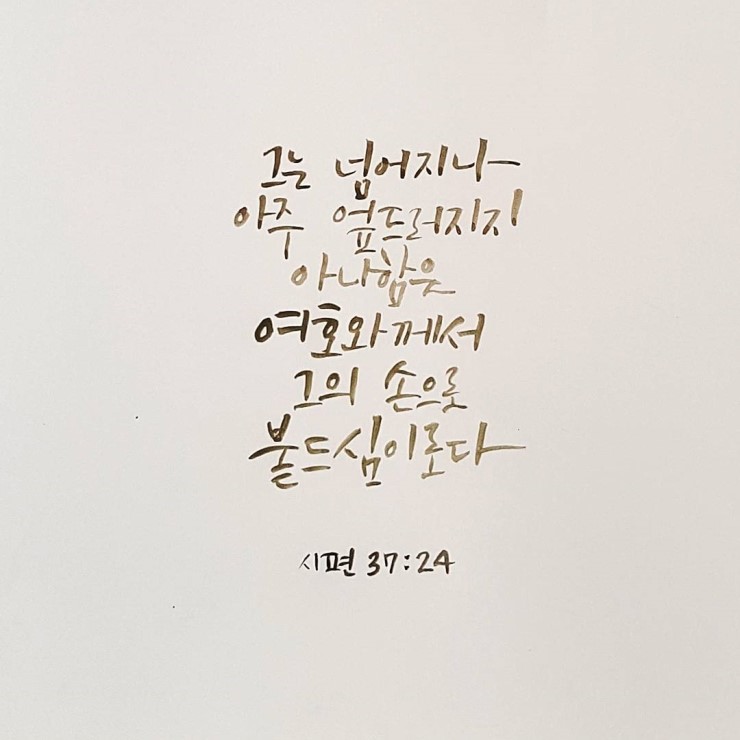 그는 넘어지나
아주 엎드러지지
아니함은
여호와께서
그의 손으로
붙드심이로다
시편 37:24